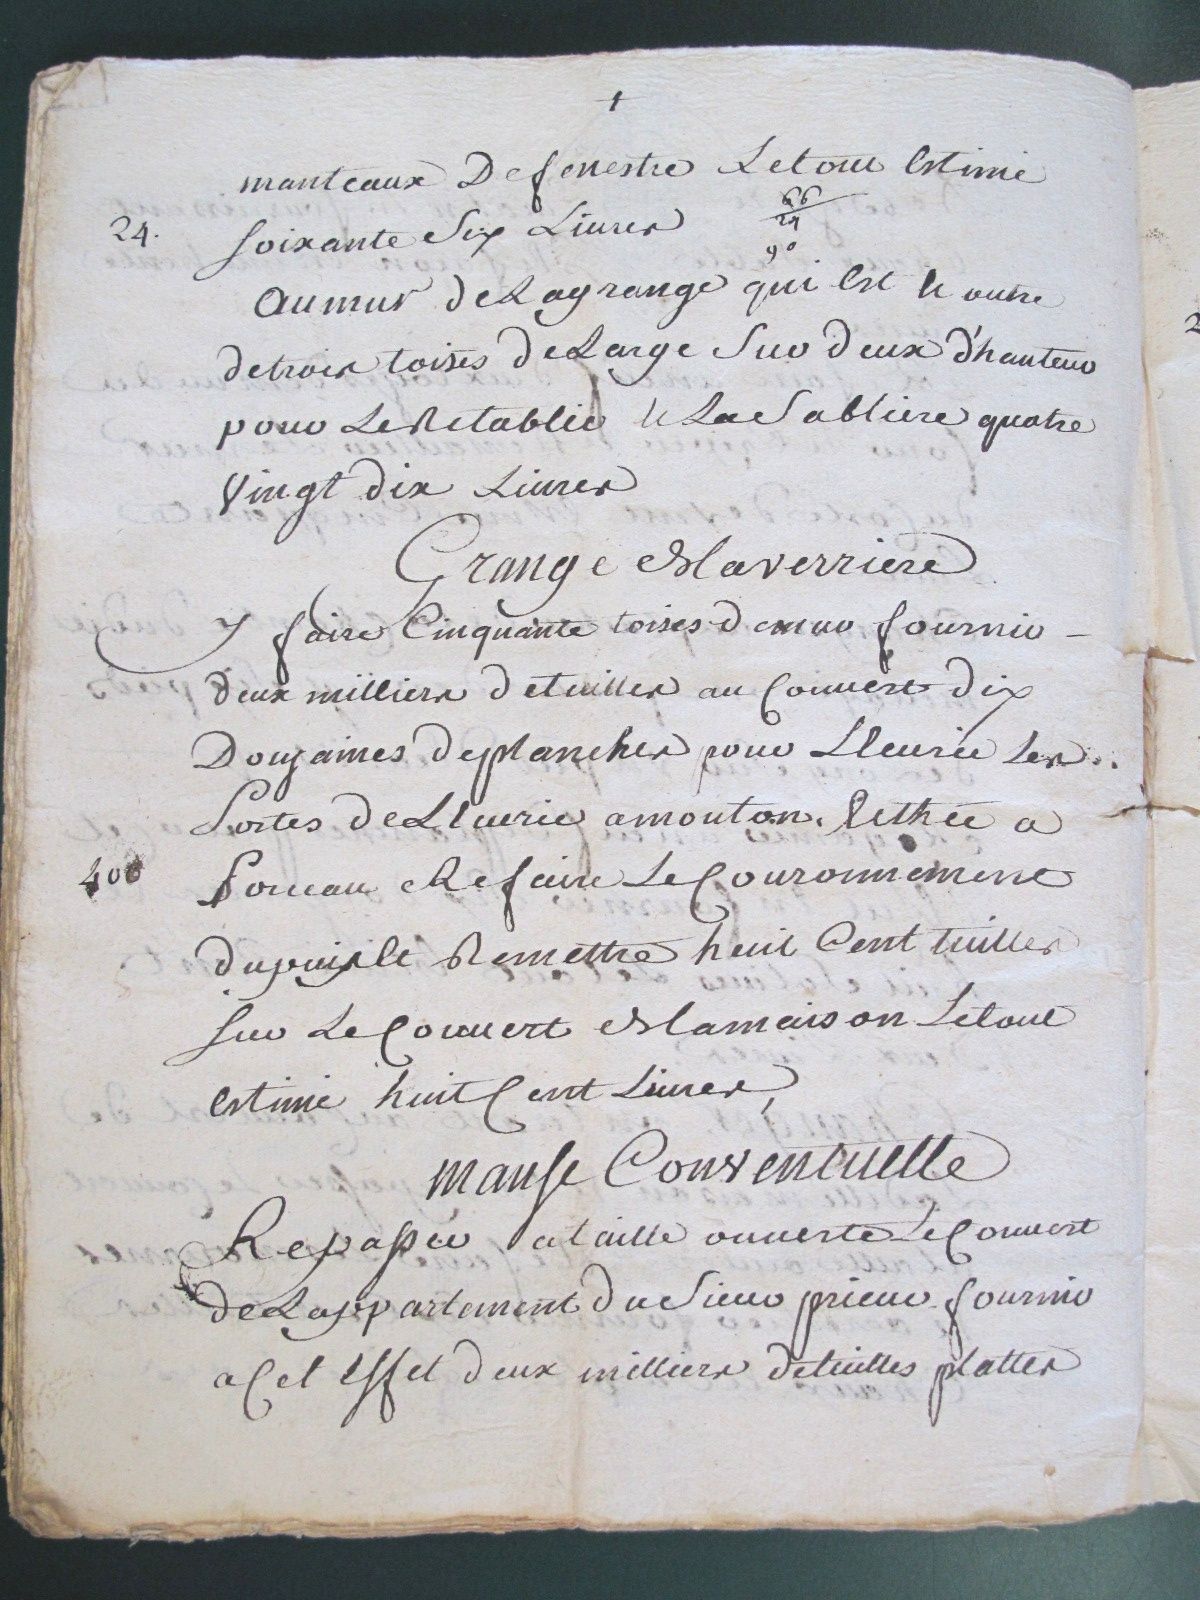 manteaux De fenestre Letout Estimé
66
24. soixante Six Livres
24
90
au mur de Lagrange qui Est a outre
de trois toises de Large Sur deux d'hauteur
pour Le Retablir & La Sabliere quatre
Vingt dix Livres
Grange & La verriere
y faire Cinquante toises de mur fournir
deux milliers de tuilles au Couvert dix
Douzaines de planches pour Lecurie Les
Portes de Lecurie a mouton. a
400 & Refaire Le Couronnement
du puis & Remettre huit Cent tuilles
sur Le Couvert de la maison Letout
Estimé huit Cent Livres,
Manse Conventuelle
Repasser a taille ouverte Le Couvert
de Lappartement du Sieur prieur fournir
a Cet Effet deux milliers de tuilles plattes